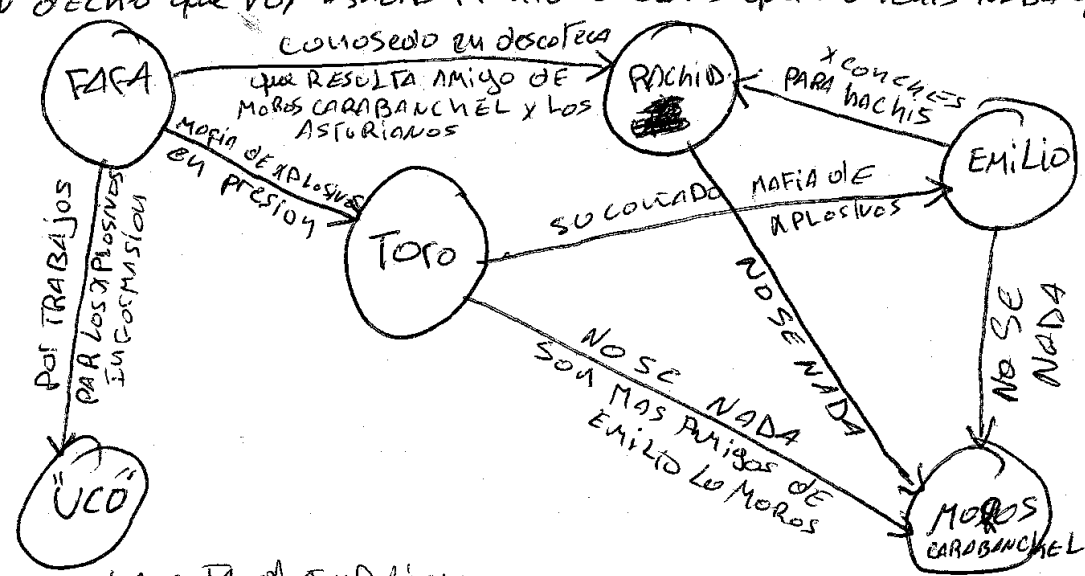 que
FAFA
CONOSEDO EN descoTeca
que RESULTA AMigo DE
MOROS CARABANCHEL X LOS
ASTURIANOS
RACHID
X CONCHES
PARA HACHIS
EMILIO
MAFIA DE XPLOSIVOS
EN presion
Toro
SU COÑADO MAFIA DE
XPLOSIVOS
POR TRABAJOS
PAR LOS XPLOSIVOS
INFOSMASION
NO SE NADA
NO SE
NADA
NO SE NADA
SON MAS AMigos DE
EMILIO LO MOROS
"UCO"
MOROS
CARABANCHEL